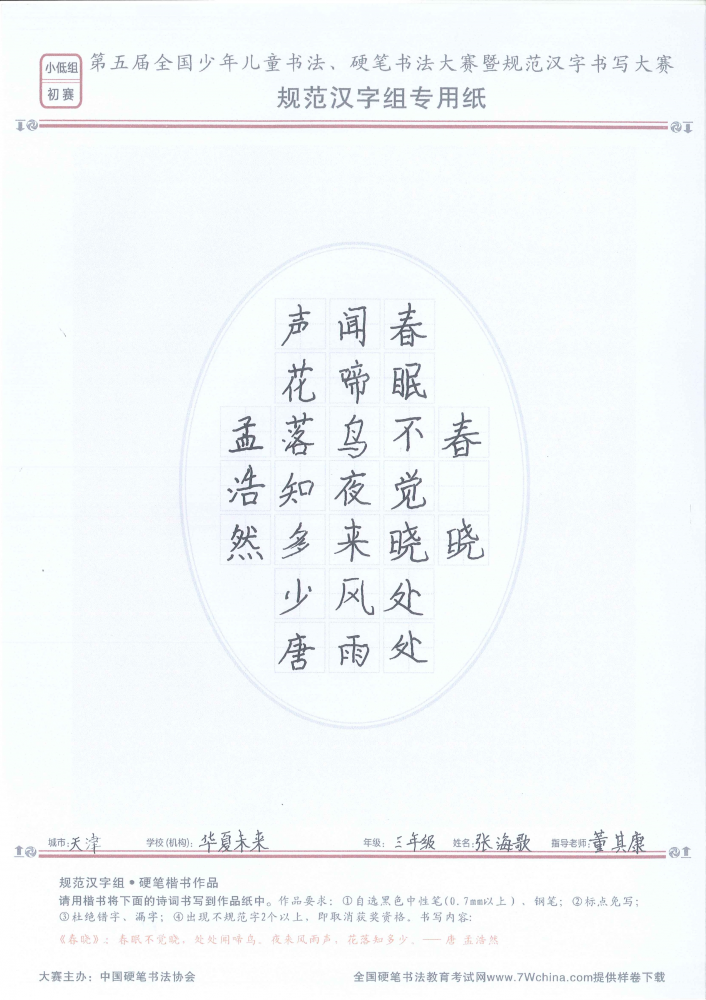 小低组
初赛
第五届全国少年儿童书法、硬笔书法大赛暨规范汉字书写大赛
规范汉字组专用纸
春晓
春眠不觉晓处处
闻啼鸟夜来风雨
声花落知多少唐
孟浩然
城市:天津 学校(机构):华夏未来 年级:三年级 姓名:张海歌 指导老师:董其康
规范汉字组•硬笔楷书作品
请用楷书将下面的诗词书写到作品纸中。作品要求：①自选黑色中性笔(0.7mm以上)、钢笔；②标点免写；
③杜绝错字、漏字；④出现不规范字2个以上，即取消获奖资格。书写内容：
《春晓》：春眠不觉晓，处处闻啼鸟。夜来风雨声，花落知多少。—— 唐 孟浩然
大赛主办：中国硬笔书法协会 全国硬笔书法教育考试网www.7Wchina.com提供样卷下载